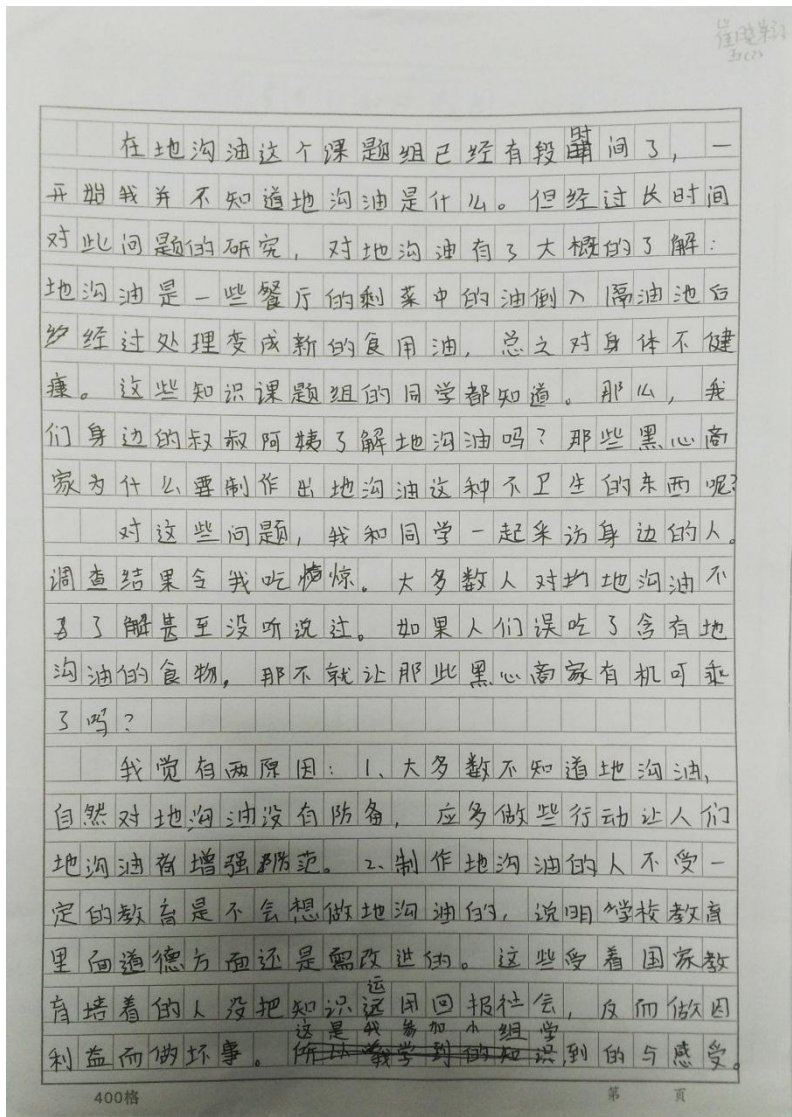 崔晓
五(7)
在地沟油这个课题组已经有段时间了，一
开始我并不知道地沟油是什么。但经过长时间
对此问题的研究，对地沟油有了大概的了解：
地沟油是一些餐厅的剩菜中的油倒入隔油池后
经过处理变成新的食用油，总之对身体不健
康。这些知识课题组的同学都知道。那么，我
们身边的叔叔阿姨了解地沟油吗？那些黑心商
家为什么要制作出地沟油这种不卫生的东西呢？
对这些问题，我和同学一起采访身边的人。
调查结果令我吃惊。大多数人对地沟油不
了解甚至没听说过。如果人们误吃了含有地
沟油的食物，那不就让那些黑心商家有机可乘
了吗？
我觉有两原因：1、大多数不知道地沟油，
自然对地沟油没有防备，应多做些行动让人们
地沟油有增强防范。2、制作地沟油的人不受一
定的教育是不会想做地沟油的，说明学校教育
里面道德方面还是需改进的。这些受着国家教
育培着的人没把知识运用回报社会，反而做因
利益而做坏事。这是我参加小组学到的与感受。
400格 第 页